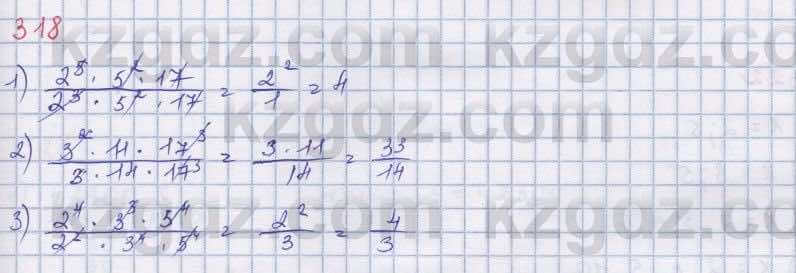 318
1) \frac{2^5 · 5^2 · 17}{2^3 · 5^2 · 17} = \frac{2^2}{1} = 4
2) \frac{3^2 · 11 · 17^3}{3 · 14 · 17^3} = \frac{3 · 11}{14} = \frac{33}{14}
3) \frac{2^4 · 3^3 · 5^4}{2^2 · 3^4 · 5^4} = \frac{2^2}{3} = \frac{4}{3}
kzgdz.com kzgdz.com
kzgdz.com
kzgdz.com kzgdz.com